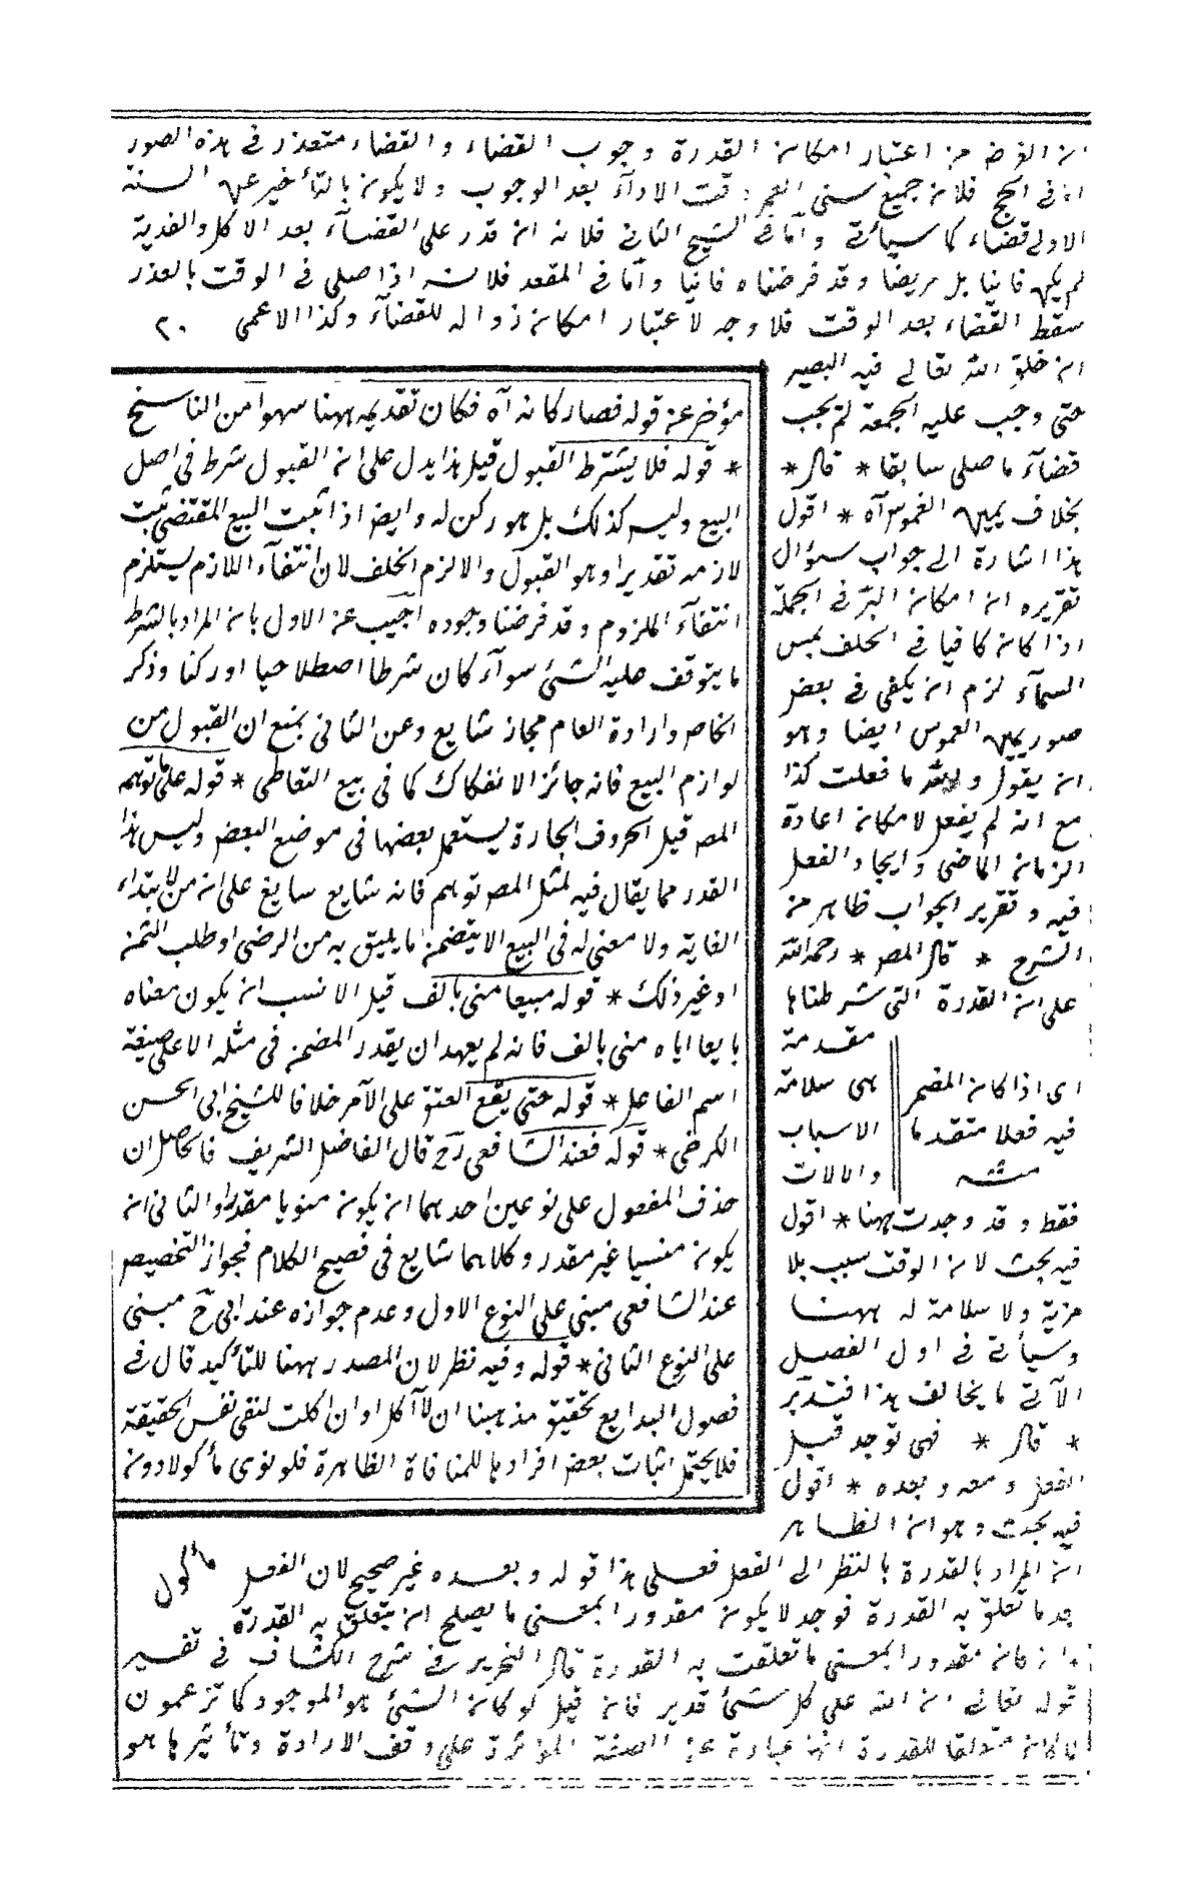 ان الغرض من اعتبار امكان القدرة وجوب القضاء والقضاء متعذر فى هذه الصور
اما فى الحج فلان جميع سنى العمر وقت الاداء بعد الوجوب ولا يكون بالتأخير عن السنة
الاولى قضاء كما سيأتى واما فى الشيخ الثانى فلانه ان قدر على القضاء بعد الاكل والفدية
لم يكن فانيا بل مريضا وقد فرضناه فانيا واما فى المقعد فلانه اذا صلى فى الوقت بالعذر
سقط القضاء بعد الوقت فلا وجه لاعتبار امكان زواله للقضاء وكذا الاعمى ٢٠
ان خلق الله تعالى فيه البصير
حتى وجب عليه الجمعة لم يجب
قضاء ما صلى سابقا * قال *
بخلاف يمين الغموس آه * اقول
هذا اشارة الى جواب سؤال
تقريره ان امكان البر فى الجملة
اذا كان كافيا فى الحلف بمس
السماء لزم ان يكفى فى بعض
صور يمين الغموس ايضا وهو
ان يقول والله ما فعلت كذا
مع انه لم يفعل لامكان اعادة
الزمان الماضى وايجاد الفعل
فيه وتقرير الجواب ظاهر من
الشرح * قال المص * رحمه الله
على ان القدرة التى شرطناها
مقدمة
هى سلامة
الاسباب
والالات
فقط وقد وجدت ههنا * اقول
فيه بحث لان الوقت سبب بلا
مزية ولا سلامة له ههنا
وسيأتى فى اول الفصل
الآتى ما يخالف هذا فتدبر
* قال * فهى توجد قبل
الفعل ومعه وبعده * اقول
فيه بحث وهو ان الظاهر
ان المراد بالقدرة بالنظر الى الفعل فعلى هذا قوله وبعده غير صحيح لان الفعل
بعد ما تعلق به القدرة فوجد لا يكون مقدورا بمعنى ما يصلح ان يتعلق به القدرة
وان كان مقدورا بمعنى ما تعلقت به القدرة قال النحرير فى شرح الكشاف فى تفسير
قوله تعالى ان الله على كل شئ قدير فان قيل لو كان الشئ هو الموجود كما تزعمون
لما كان متعلقا للقدرة لانها عبارة عن الصفة المؤثرة على وفق الارادة وتأثيرها هو
اى اذا كان المضمر
فيه فعلا متقدما
منه
مؤخر عن قوله فصار كانه آه فكان تقديمه ههنا سهوا من الناسخ
* قوله فلا يشترط القبول قيل هذا يدل على ان القبول شرط فى اصل
البيع وليس كذلك بل هو ركن له وايض اذا ثبت البيع المقتضى ثبت
لازمه تقديرا وهو القبول والا لزم الخلف لان انتفاء اللازم يستلزم
انتفاء الملزوم وقد فرضنا وجوده اجيب عن الاول بان المراد بالشرط
ما يتوقف عليه الشئ سواء كان شرطا اصطلاحيا او ركنا وذكر
الخاص وارادة العام مجاز شايع وعن الثانى بمنع ان القبول من
لوازم البيع فانه جائز الانفكاك كما فى بيع التعاطى * قوله على ما توهمه
المص قيل الحروف الجارة يستعمل بعضها فى موضع البعض وليس هذا
القدر مما يقال فيه لمثل المص توهم فانه شايع سايغ على ان من لابتداء
الغاية ولا معنى له فى البيع الا يتضمن ما يليق به من الرضى او طلب الثمن
او غير ذلك * قوله مبيعا منى بالف قيل الانسب ان يكون معناه
بايعا اياه منى بالف فانه لم يعهد ان يقدر المضمن فى مثله الا على صيغة
اسم الفاعل * قوله حتى يقع العتق على الآمر خلافا للشيخ ابى الحسن
الكرخى * قوله فعند الشافعى رح قال الفاضل الشريف فالحاصل ان
حذف المفعول على نوعين احدهما ان يكون منويا مقدرا والثانى ان
يكون منسيا غير مقدر وكلاهما شايع فى فصيح الكلام فجواز التخصيص
عند الشافعى مبنى على النوع الاول وعدم جوازه عند ابى ح مبنى
على النوع الثانى * قوله وفيه نظر لان المصدر ههنا للتأكيد قال فى
فصول البدايع تحقيق مذهبنا ان لا آكل او ان اكلت لنفى نفس الحقيقة
فلا يحتمل اثبات بعض افرادها للمنافاة الظاهرة فلو نوى مأكولا دون
مأكول